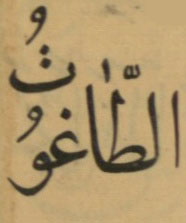 الطَّاغُوتُ